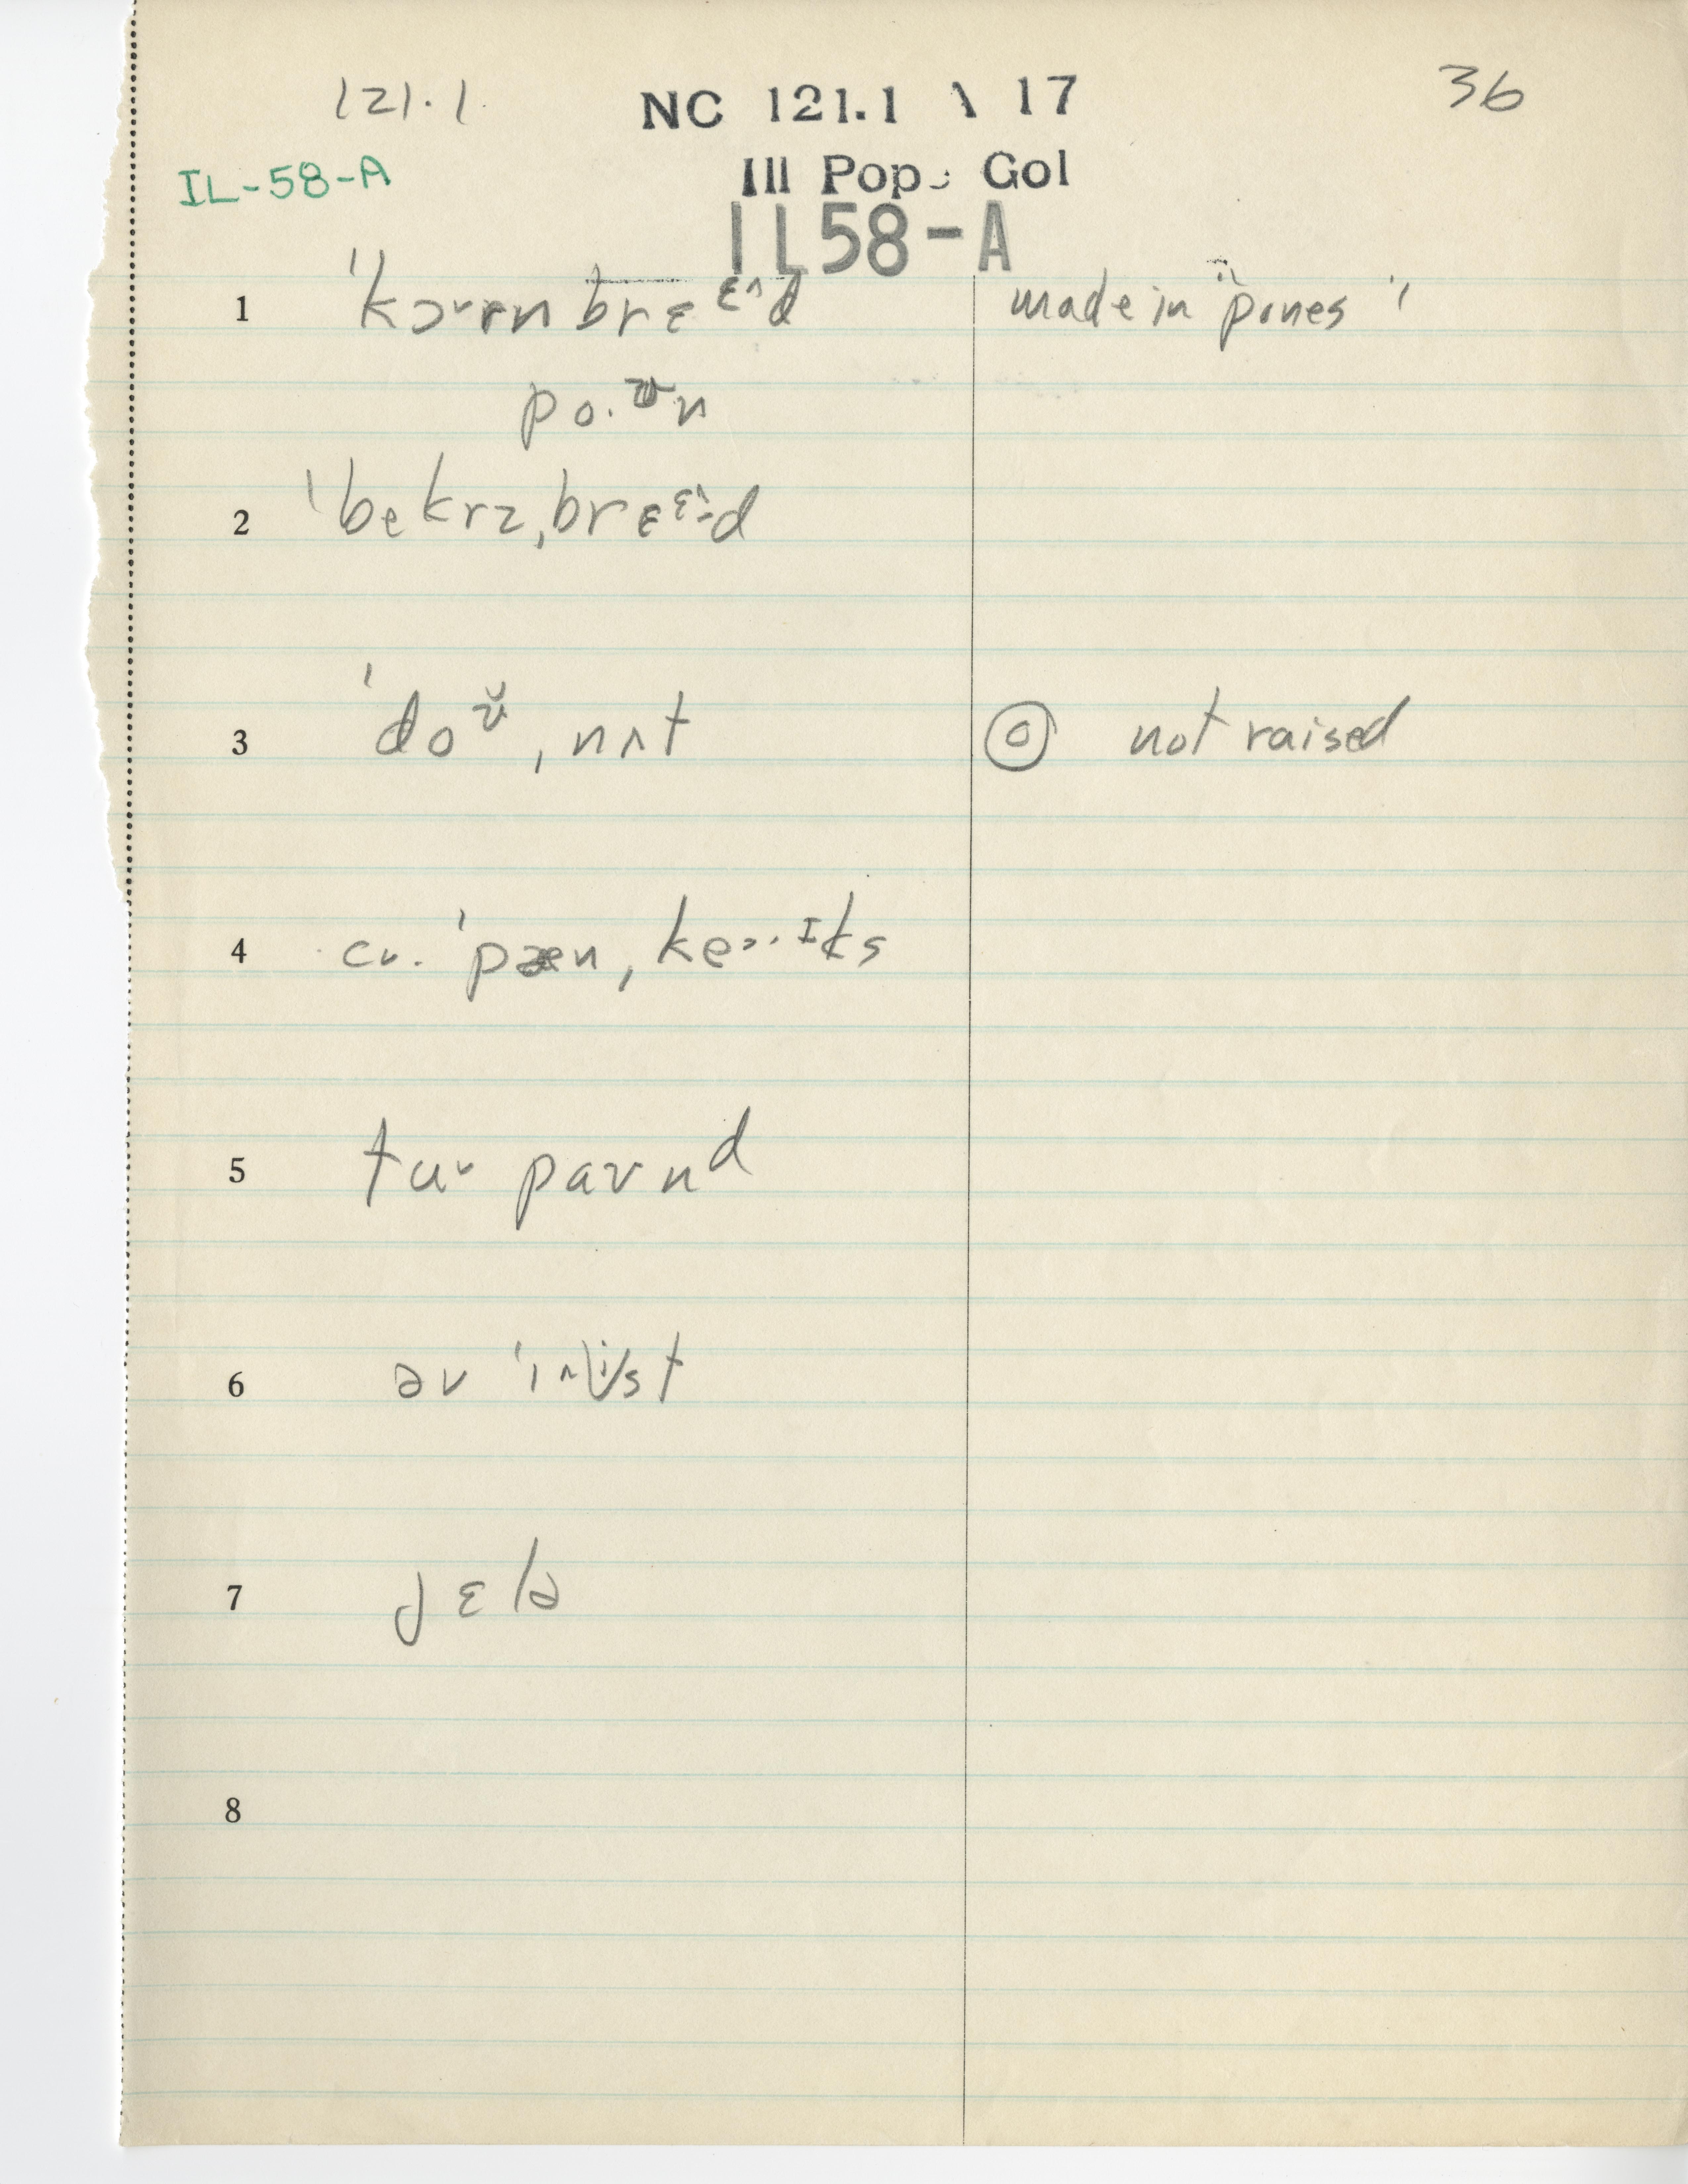 121.1. NC 121.1 \ 17 36
IL-58-A Ill Pop. Gol
IL58-A
1 ˈkɔ˅rn brɛᵋ^d made in "pones"
po.ʊn
2 ˈbekrz,brɛᵋd
3 ˈdoʊ̆,nʌt ⓞ not raised
4 cv. ˈpæn,ke˃.ᶦks
5 tu˅ paʊnᵈ
6 əv ˈist
7 jɛlə
8